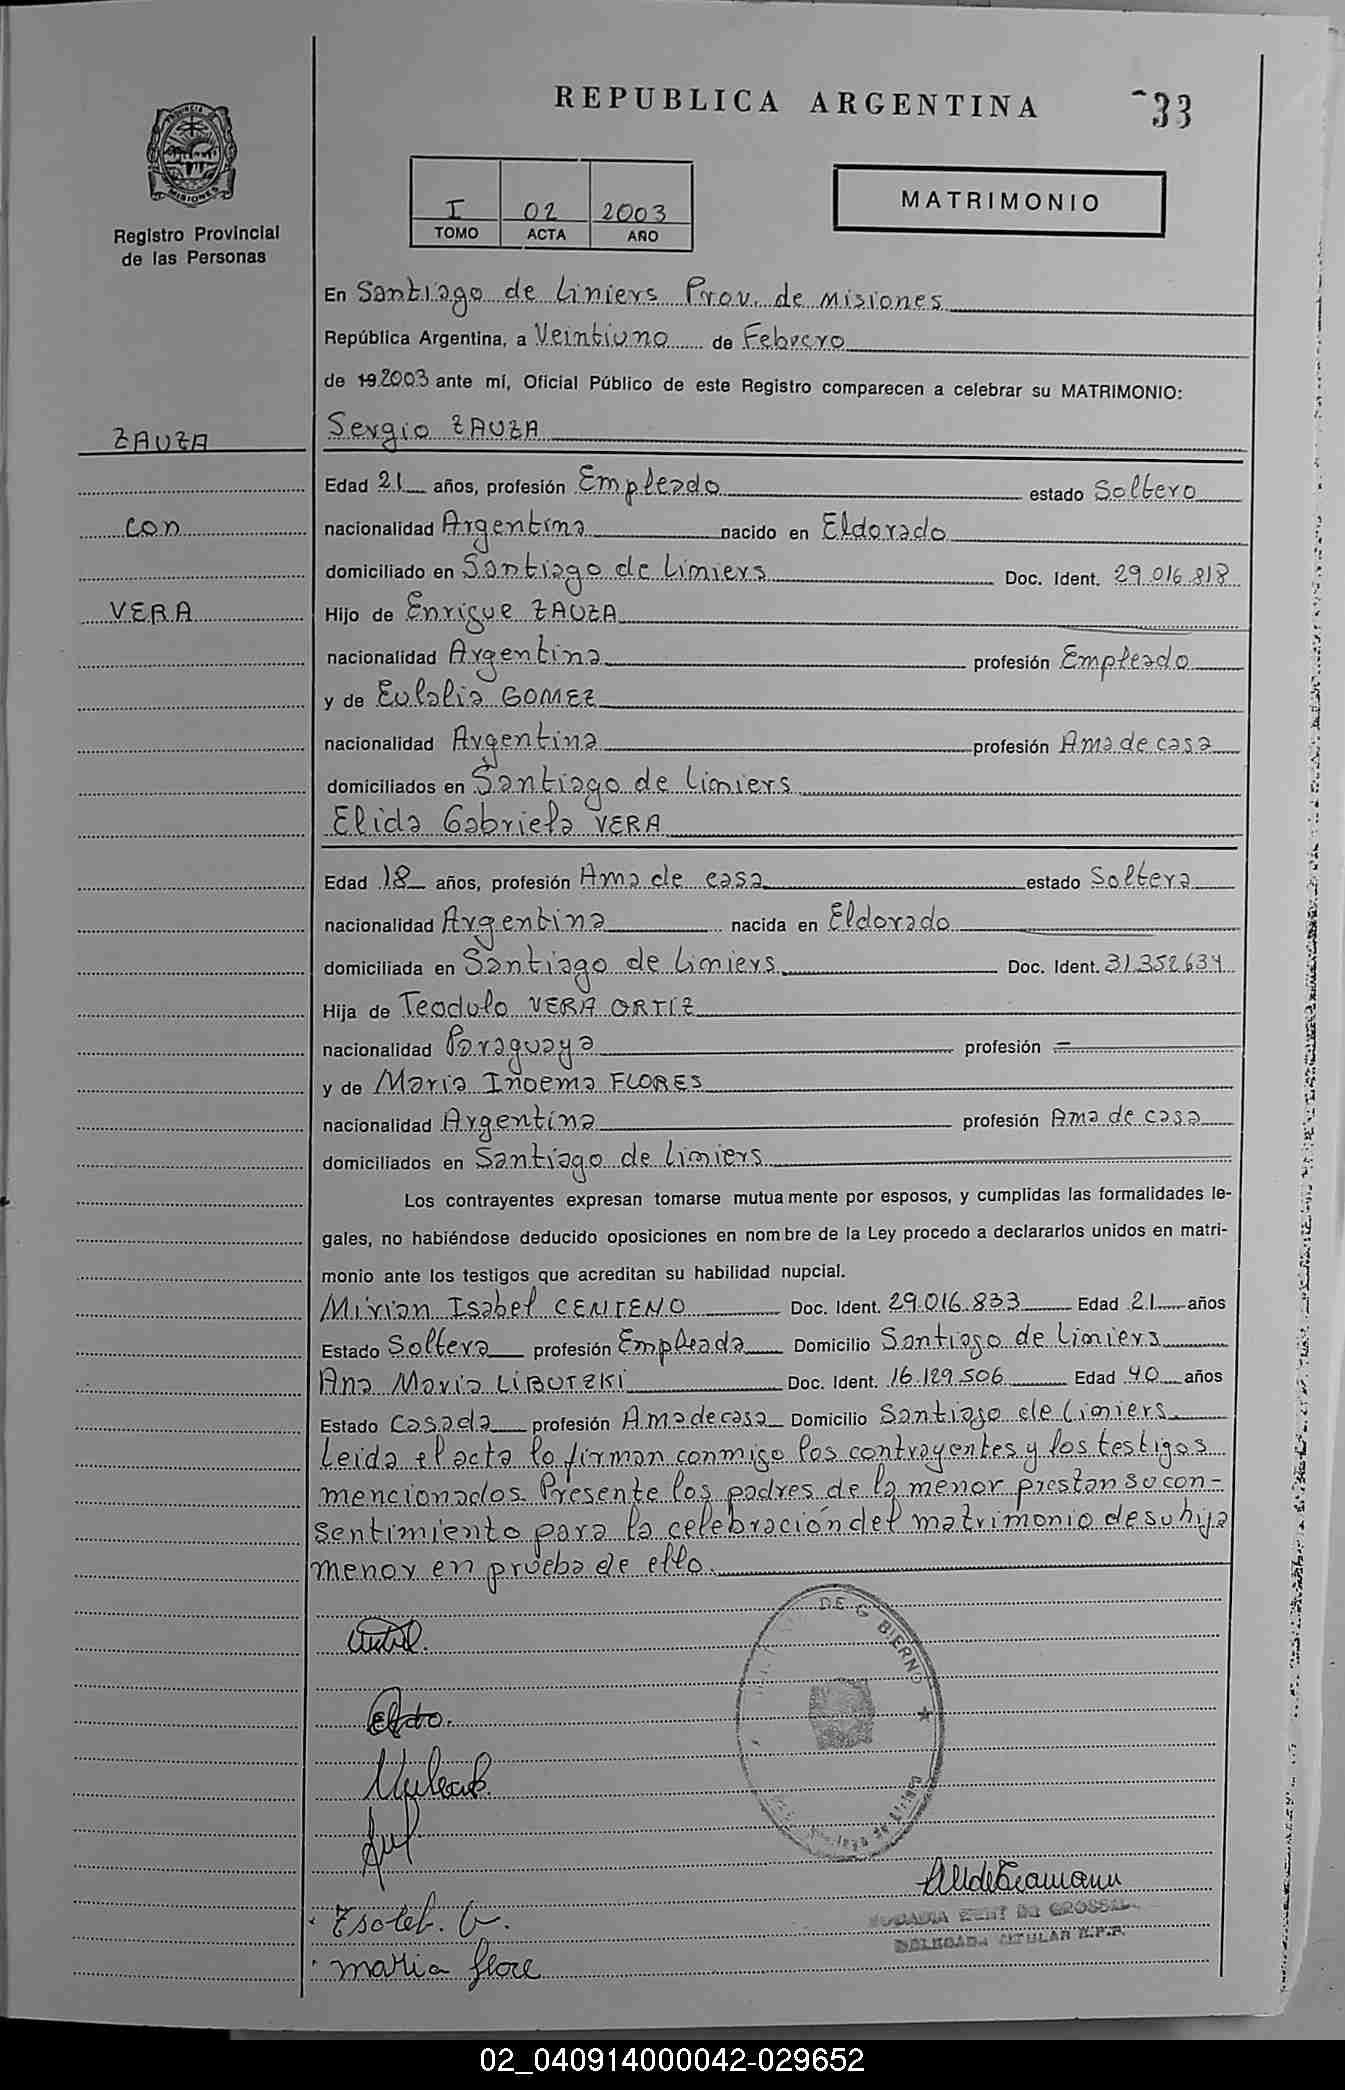 REPUBLICA ARGENTINA
33
PROVINCIA
MISIONES
Registro Provincial
de las Personas
I 02 2003
TOMO ACTA AÑO
MATRIMONIO
En Santiago de Liniers Prov. de Misiones
República Argentina, a Veintiuno de Febrero
de 19 2003 ante mí, Oficial Público de este Registro comparecen a celebrar su MATRIMONIO:
ZAUZA
Sergio ZAUZA
Edad 21 años, profesión Empleado estado Soltero
con
nacionalidad Argentina nacido en Eldorado
domiciliado en Santiago de Liniers Doc. Ident. 29.016.818
VERA
Hijo de Enrique ZAUZA
nacionalidad Argentina profesión Empleado
y de Eulalia GOMEZ
nacionalidad Argentina profesión Ama de casa
domiciliados en Santiago de Liniers
Elida Gabriela VERA
Edad 18 años, profesión Ama de casa estado Soltera
nacionalidad Argentina nacida en Eldorado
domiciliada en Santiago de Liniers Doc. Ident. 31.352.634
Hija de Teodulo VERA ORTIZ
nacionalidad Paraguaya profesión =
y de Maria Inoema FLORES
nacionalidad Argentina profesión Ama de casa
domiciliados en Santiago de Liniers
Los contrayentes expresan tomarse mutuamente por esposos, y cumplidas las formalidades le-
gales, no habiéndose deducido oposiciones en nombre de la Ley procedo a declararlos unidos en matri-
monio ante los testigos que acreditan su habilidad nupcial.
Mirian Isabel CENTENO Doc. Ident. 29.016.833 Edad 21 años
Estado Soltera profesión Empleada Domicilio Santiago de Liniers
Ana Maria LIBUTZKI Doc. Ident. 16.129.506 Edad 40 años
Estado Casada profesión Ama de casa Domicilio Santiago de Liniers
Leida el acta lo firman conmigo los contrayentes y los testigos
mencionados. Presente los padres de la menor prestan su con-
sentimiento para la celebración del matrimonio de su hija
menor en prueba de ello.
DE G BIERN
maria flore
DELEGADA TITULAR R.P.P.
02_040914000042-029652